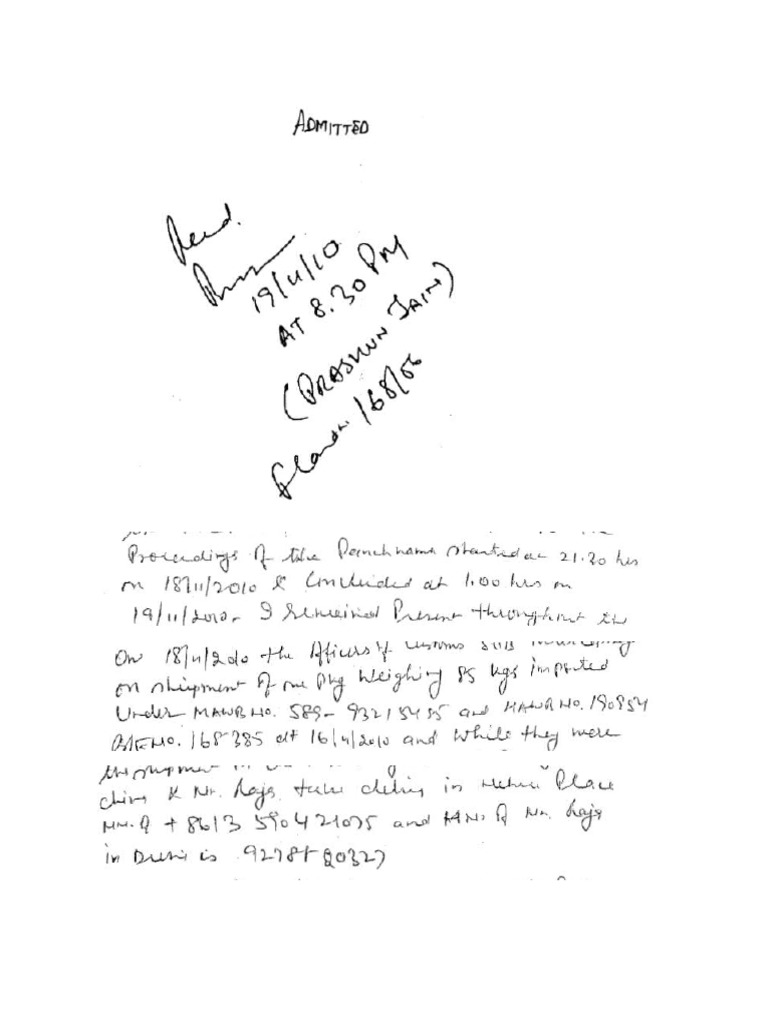 ADMITTED
Read.
19/11/10
AT 8.30 PM
(PRASHUN JAIN)
168/06
Proceedings of the Panchnama started at 21.30 hrs
on 18/11/2010 & Concluded at 1.00 hrs on
19/11/2010. I remained Present throughout the
On 18/11/2010 the officers of customs
on shipment of one pkg Weighing 85 kgs imported
Under MAWB No. 589- and HAWB No. 190854
No. 168385 dt 16/11/2010 and while they were
the shipment
Mr. Raja take in Nehru Place
+8613 590421075 and Mr. Raja
in Delhi is